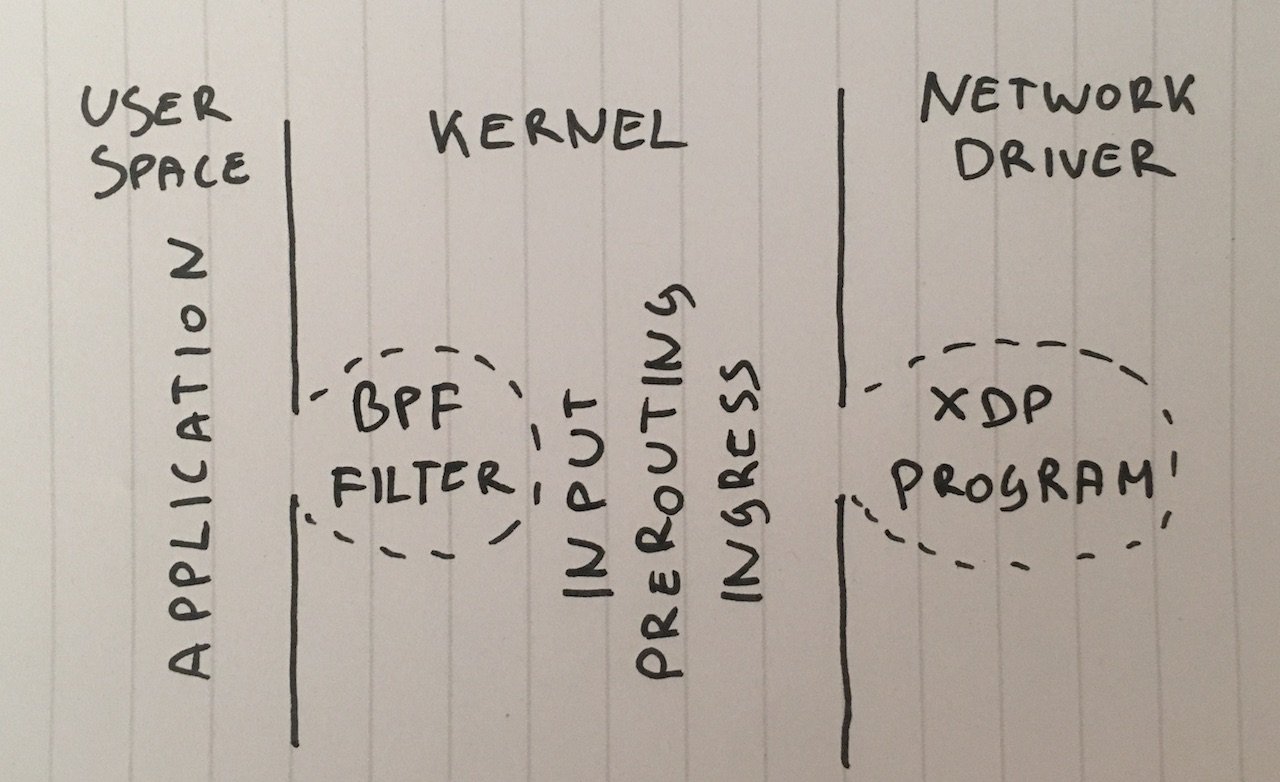 USER
SPACE
KERNEL
NETWORK
DRIVER
APPLICATION
BPF
FILTER
INPUT
PREROUTING
INGRESS
XDP
PROGRAM